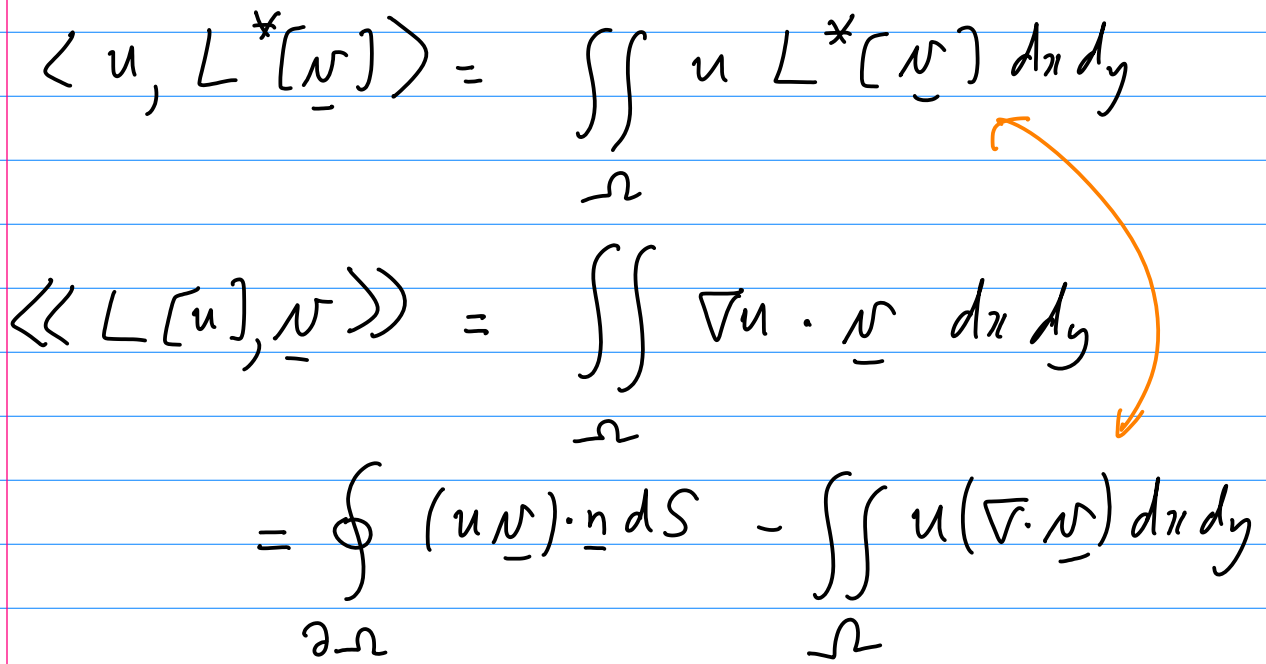 ⟨ u, L*[v̲] ⟩ = ∬_Ω u L*[v̲] dx dy
⟪ L[u], v̲ ⟫ = ∬_Ω ∇u · v̲ dx dy
= ∮_∂Ω (u v̲) · n̲ dS - ∬_Ω u(∇ · v̲) dx dy